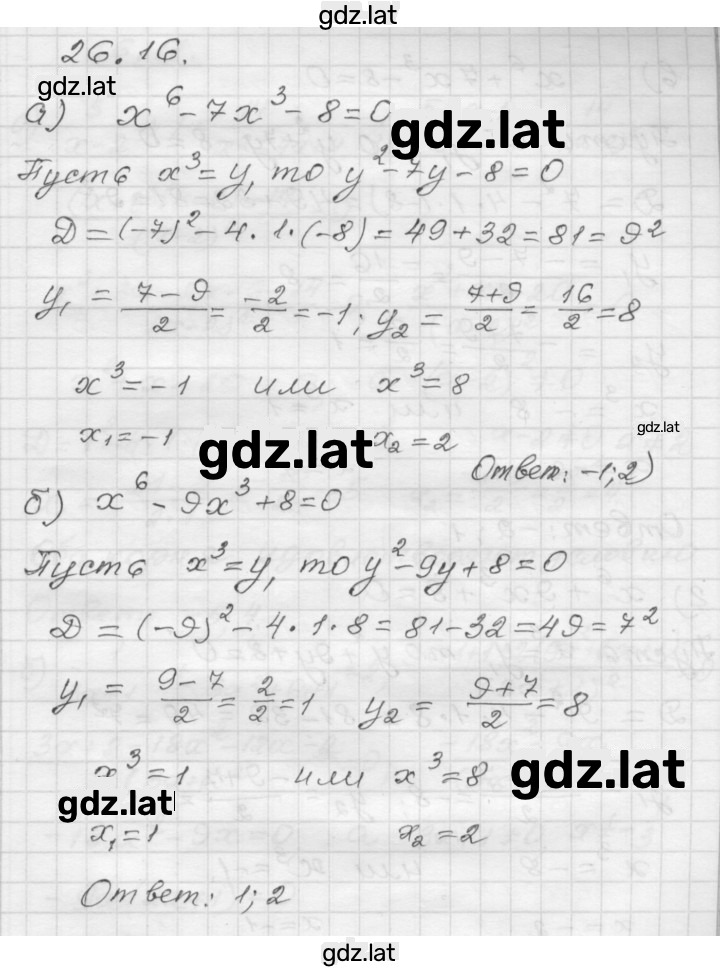 gdz.lat
26.16.
gdz.lat
а) x⁶ - 7x³ - 8 = 0
gdz.lat
Пусть x³ = y, то y² - 7y - 8 = 0
D = (-7)² - 4 · 1 · (-8) = 49 + 32 = 81 = 9²
y₁ = (7 - 9)/2 = -2/2 = -1; y₂ = (7+9)/2 = 16/2 = 8
x³ = -1 или x³ = 8
gdz.lat
x₁ = -1 gdz.lat x₂ = 2
Ответ: -1; 2)
б) x⁶ - 9x³ + 8 = 0
Пусть x³ = y, то y² - 9y + 8 = 0
D = (-9)² - 4 · 1 · 8 = 81 - 32 = 49 = 7².
y₁ = (9 - 7)/2 = 2/2 = 1 y₂ = (9+7)/2 = 8
x³ = 1 или x³ = 8 gdz.lat
gdz.lat
x₁ = 1 x₂ = 2
Ответ: 1; 2
gdz.lat